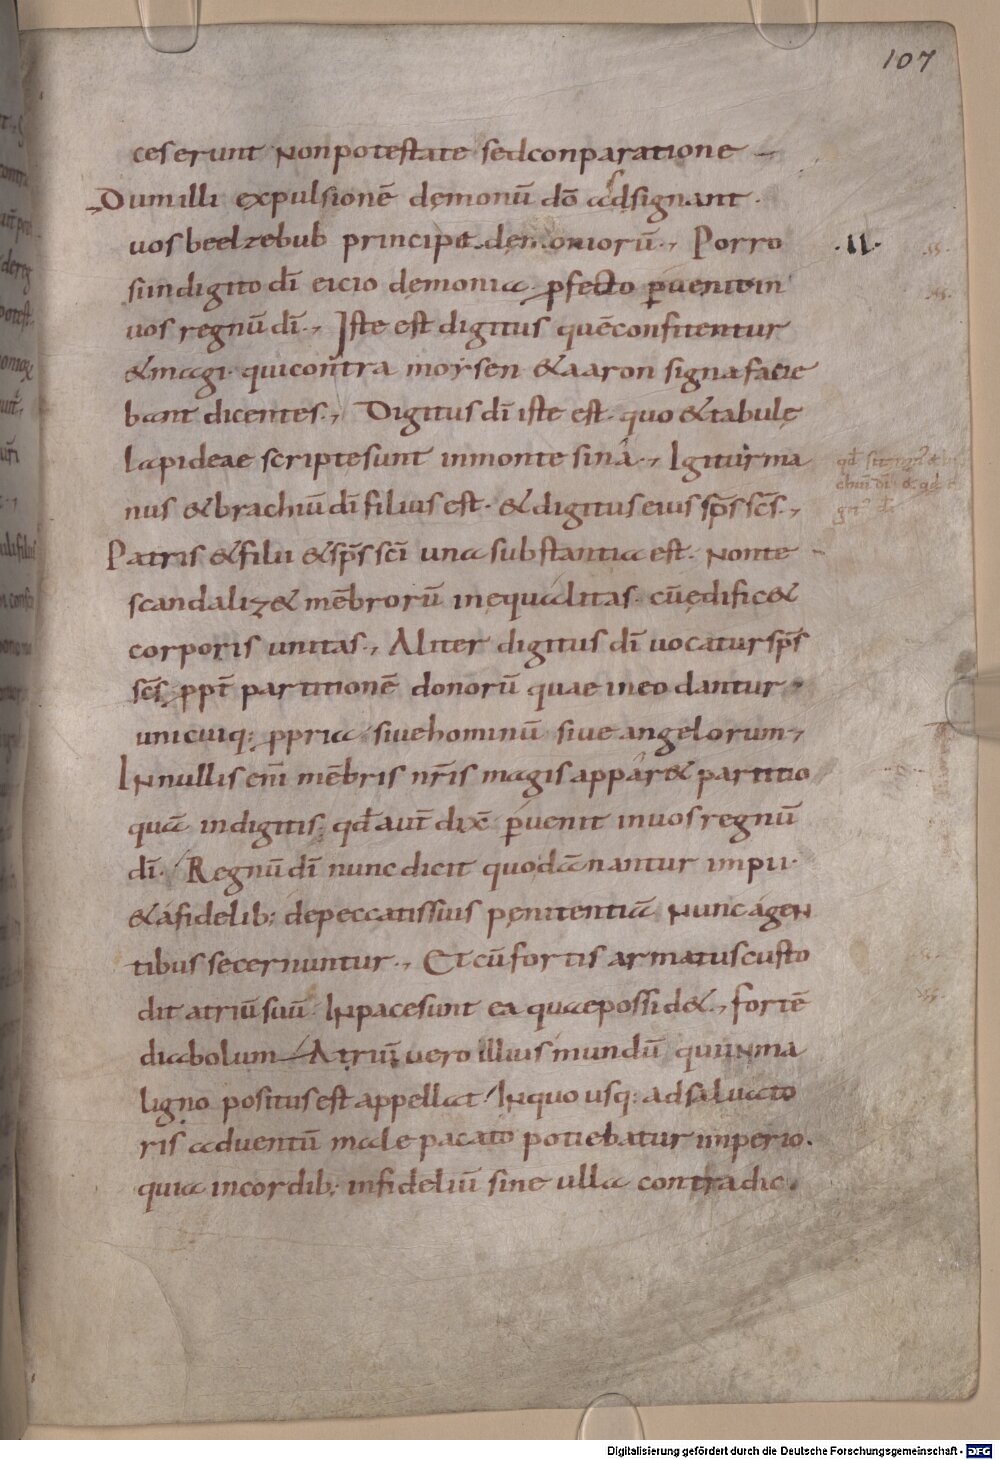 107
ces erunt non potestate sed conparatione
Dum illi expulsionē demonū dō adsignant.
uos beelzebub principe demoniorū., Porro
si in digito dī eicio demonia. pfecto puenit in
uos regnū dī., Iste est digitus quē confitentur
& magi. qui contra moysen & aaron signa facie
bant dicentes., Digitus dī iste est. quo & tabulę
lapideae scripte sunt in monte sina., Igitur ma
nus & brachiū dī filius est. & digitus eius sps scs.,
Patris & filii & sps sci una substantia est. Non te
scandaliz& mēbrorū inequalitas. cū edific&
corporis unitas., Aliter digitus dī uocatur sps
scs. ppt partitionē donorū quae in eo dantur.
unicuiq; ppria siue hominū siue angelorum.,
In nullis enī mēbris nris magis appar& partitio
quā in digitis; qd aut dix puenit in uos regnū
dī. Regnū dī nunc dicit quo dānantur impii.
& a fidelib; de peccatis suis penitentiā nunc agen
tibus secernuntur., Et cū fortis armatus custo
dit atriū suū. In pace sunt ea quae possid&., fortē
diabolum Atriū uero illius mundū qui in ma
ligno positus est appellat. In quo usq; ad saluato
ris aduentū male pacato potiebatur imperio.
quia in cordib; infideliū sine ulla contradic.
.II.
Digitalisierung gefördert durch die Deutsche Forschungsgemeinschaft - DFG